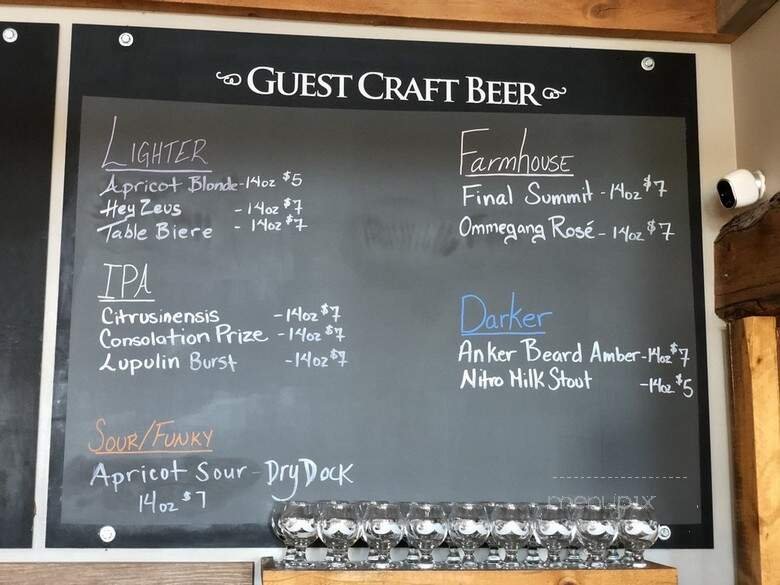 GUEST CRAFT BEER
LIGHTER
Apricot Blonde - 14oz $5
Hey Zeus - 14oz $7
Table Biere - 14oz $7
IPA
Citrusinensis - 14oz $7
Consolation Prize - 14oz $7
Lupulin Burst - 14oz $7
SOUR/FUNKY
Apricot Sour - Dry Dock
14oz $7
Farmhouse
Final Summit - 14oz $7
Ommegang Rosé - 14oz $7
Darker
Anker Beard Amber - 14oz $7
Nitro Milk Stout - 14oz $5
menupix